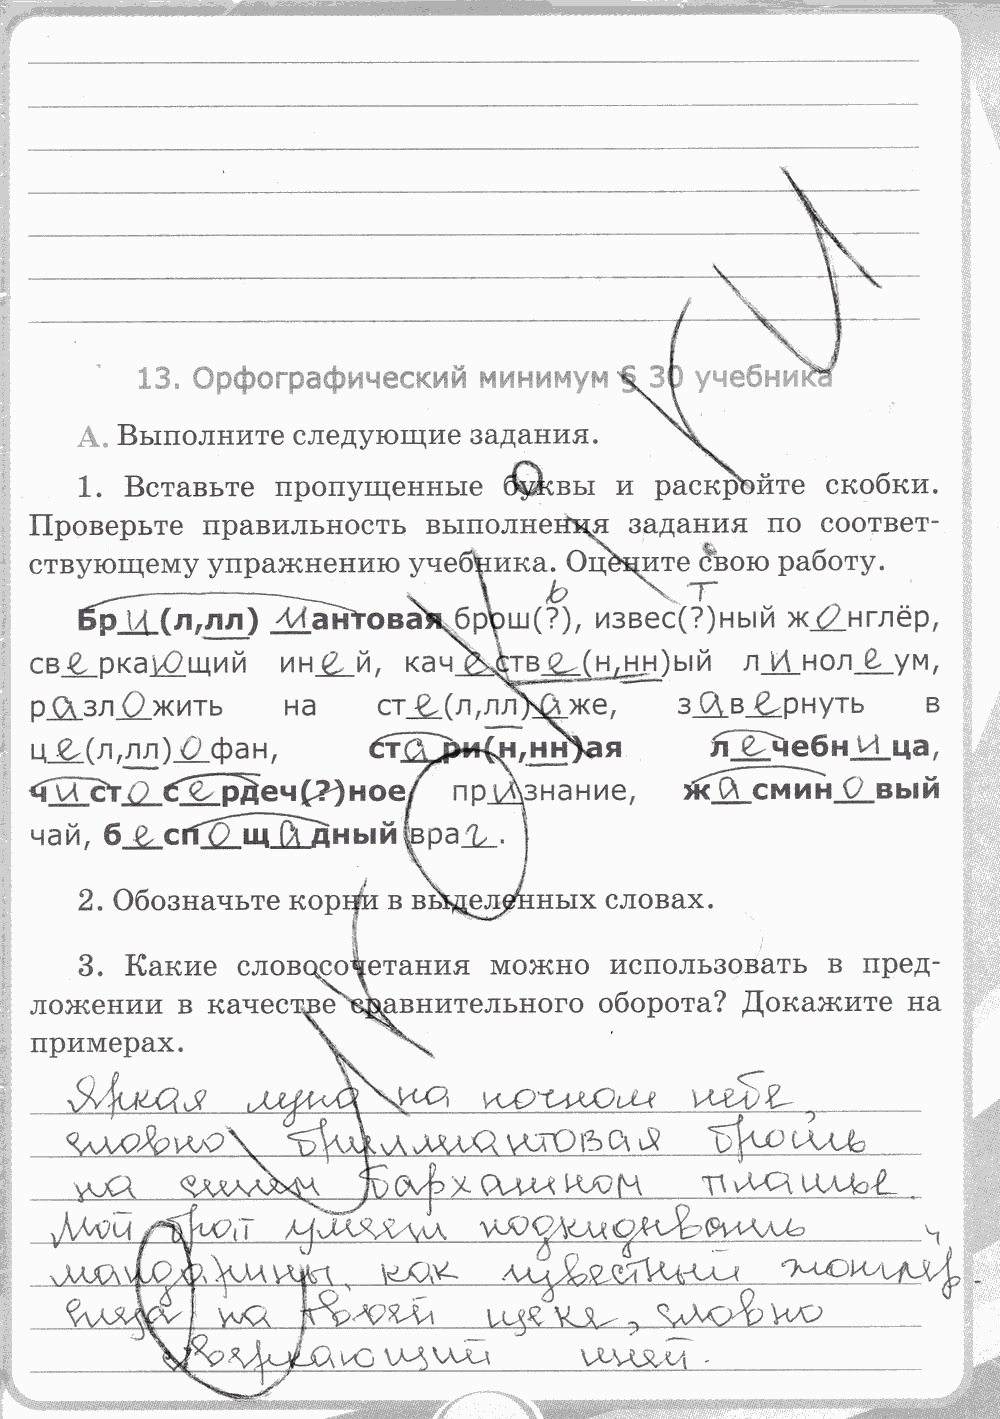 13. Орфографический минимум § 30 учебника
А. Выполните следующие задания.
1. Вставьте пропущенные буквы и раскройте скобки.
Проверьте правильность выполнения задания по соответ-
ствующему упражнению учебника. Оцените свою работу.
Бр и (л,лл) и антовая брош(?) ь, извес(?) т ный ж о нглёр,
св е рка ю щий ин е й, кач е ств е (н,нн)ый л и нол е ум,
р а зл о жить на ст е (л,лл) а же, з а в е рнуть в
ц е (л,лл) о фан, ст а ри(н,нн)ая л е чебн и ца,
ч и ст о с е рдеч(?)ное пр и знание, ж а смин о вый
чай, б е сп о щ а дный вра г .
2. Обозначьте корни в выделенных словах.
3. Какие словосочетания можно использовать в пред-
ложении в качестве сравнительного оборота? Докажите на
примерах.
Яркая луна на ночном небе,
словно бриллиантовая брошь
на синем бархатном платье.
Мой брат умеет подкидывать
мандарины, как известный жонглёр
на твоей щеке, словно
сверкающий иней.